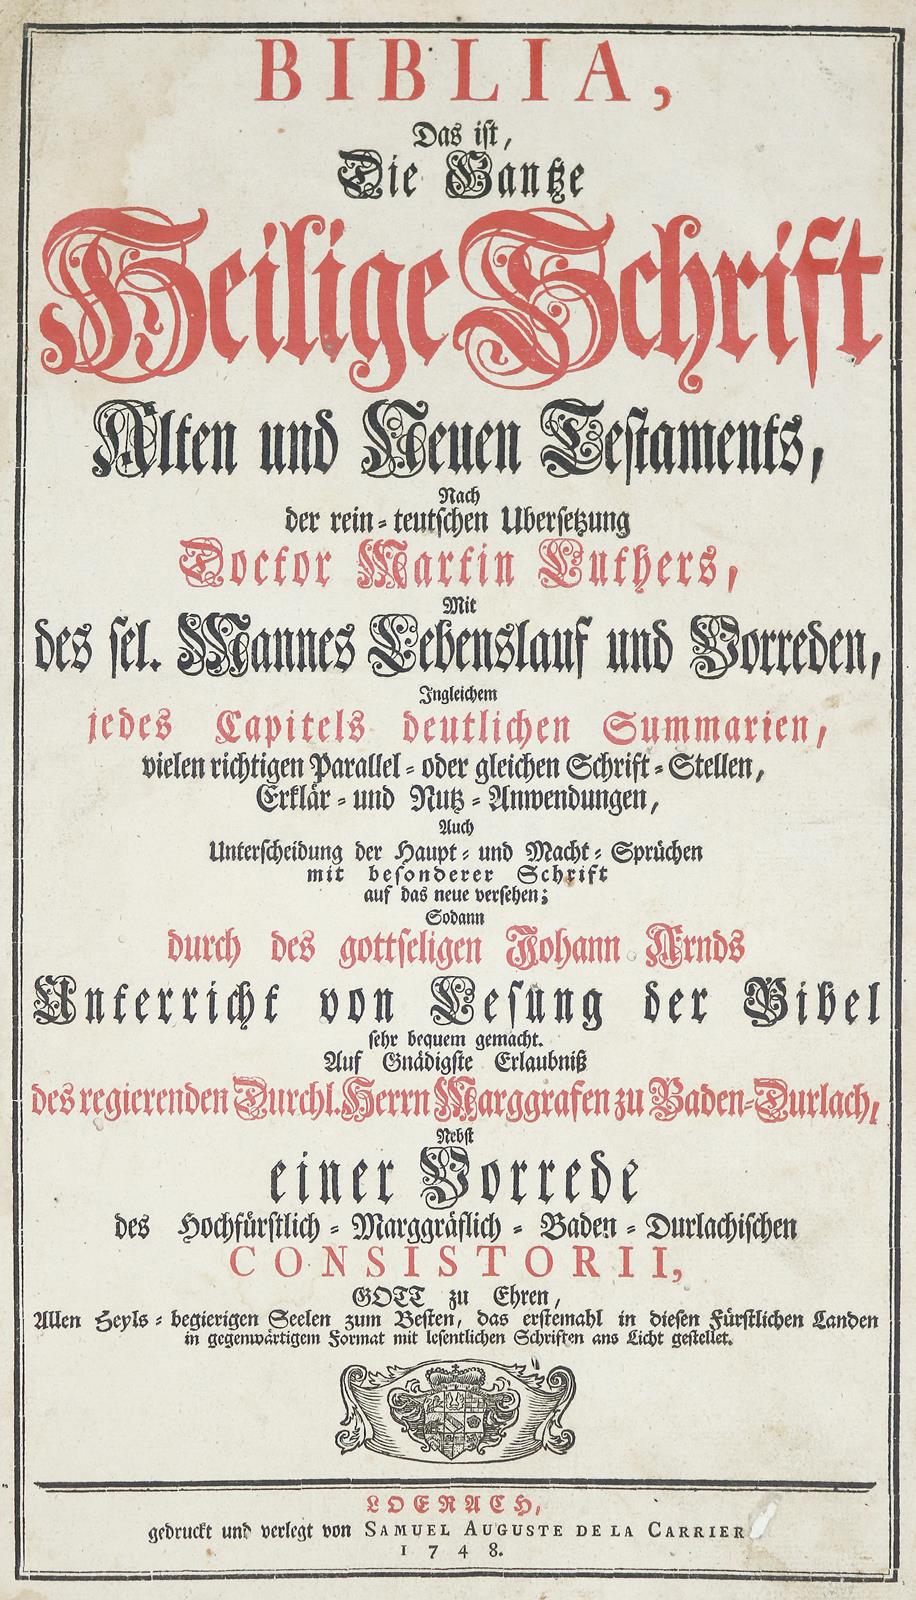 BIBLIA,
Das ist,
Die Gantze
Heilige Schrift
Alten und Neuen Testaments,
Nach
der rein-teutschen Ubersetzung
Doctor Martin Luthers,
Mit
des sel. Mannes Lebenslauf und Vorreden,
Ingleichem
jedes Capitels deutlichen Summarien,
vielen richtigen Parallel- oder gleichen Schrift-Stellen,
Erklär- und Nutz-Anwendungen,
Auch
Unterscheidung der Haupt- und Macht-Sprüchen
mit besonderer Schrift
auf das neue versehen;
Sodann
durch des gottseligen Johann Arnds
Unterricht von Lesung der Bibel
sehr bequem gemacht.
Auf Gnädigste Erlaubniß
des regierenden Durchl. Herrn Marggrafen zu Baden-Durlach,
Nebst
einer Vorrede
des Hochfürstlich-Marggräflich-Baden-Durlachischen
CONSISTORII,
GOTT zu Ehren,
Allen Heyls-begierigen Seelen zum Besten, das erstemahl in diesen Fürstlichen Landen
in gegenwärtigem Format mit lesentlichen Schriften ans Licht gestellet.
LOERACH,
gedruckt und verlegt von SAMUEL AUGUSTE DE LA CARRIER
1748.